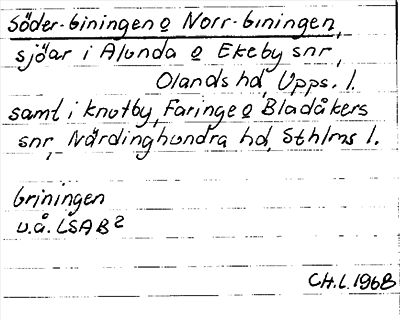 Söder-Giningen o Norr-Giningen,
sjöar i Alunda o Ekeby snr,
Olands hd, Upps. l.
samt i Knutby, Faringe o Bladåkers
snr, Närdinghundra hd, Sthlms l.
Griningen
u.å. LSAB2
CH.L. 1968